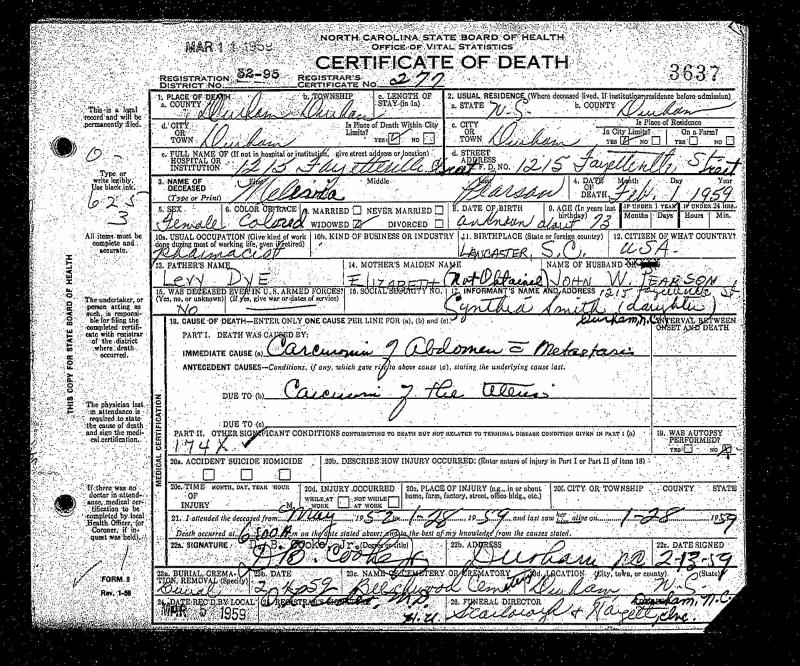 MAR 11 1959
NORTH CAROLINA STATE BOARD OF HEALTH
OFFICE OF VITAL STATISTICS
CERTIFICATE OF DEATH
3637
REGISTRATION DISTRICT NO. 32-95 REGISTRAR'S CERTIFICATE No. 277
This is a legal record and will be permanently filed.
Type or write legibly. Use black ink.
625
3
All items must be complete and accurate.
The undertaker, or person acting as such, is responsible for filing the completed certificate with registrar of the district where death occurred.
The physician last in attendance is required to state the cause of death and sign the medical certification.
If there was no doctor in attendance, medical certification to be completed by local Health Officer, (or Coroner, if inquest was held).
FORM 8
Rev. 1-56
THIS COPY FOR STATE BOARD OF HEALTH
MEDICAL CERTIFICATION
1. PLACE OF DEATH
a. COUNTY Durham b. TOWNSHIP Durham c. LENGTH OF STAY (in 1a)
2. USUAL RESIDENCE (Where deceased lived. If institution: residence before admission)
a. STATE N.C. b. COUNTY Durham
d. CITY OR TOWN Durham Is Place of Death Within City Limits? YES NO
c. CITY OR TOWN Durham Is Place of Residence In City Limits? YES NO On a Farm? YES NO
e. FULL NAME OF HOSPITAL OR INSTITUTION (If not in hospital or institution, give street address or location) 1215 Fayetteville Street
d. STREET ADDRESS OR R.F.D. NO. 1215 Fayetteville Street
3. NAME OF DECEASED (Type or Print) First Middle Last Pearson
4. DATE OF DEATH Month Day Year Feb. 1 1959
5. SEX Female
6. COLOR OR RACE Colored
7. MARRIED NEVER MARRIED WIDOWED DIVORCED
8. DATE OF BIRTH unknown
9. AGE (In years last birthday) about 73 IF UNDER 1 YEAR Months Days IF UNDER 24 HRS. Hours Min.
10a. USUAL OCCUPATION (Give kind of work done during most of working life, even if retired) Pharmacist
10b. KIND OF BUSINESS OR INDUSTRY
11. BIRTHPLACE (State or foreign country) LANCASTER, S.C.
12. CITIZEN OF WHAT COUNTRY? USA
13. FATHER'S NAME LEVY DYE
14. MOTHER'S MAIDEN NAME ELIZABETH (Not Obtained)
NAME OF HUSBAND JOHN W. PEARSON
15. WAS DECEASED EVER IN U.S. ARMED FORCES? (Yes, no, or unknown) (If yes, give war or dates of service) No
16. SOCIAL SECURITY NO.
17. INFORMANT'S NAME AND ADDRESS 1215 Fayetteville St
Cynthia Smith (daughter) Durham, N.C.
18. CAUSE OF DEATH—ENTER ONLY ONE CAUSE PER LINE FOR (a), (b) and (c) INTERVAL BETWEEN ONSET AND DEATH
PART I. DEATH WAS CAUSED BY:
IMMEDIATE CAUSE (a) Carcinoma of Abdomen c Metastasis
ANTECEDENT CAUSES—Conditions, if any, which gave rise to above cause (a), stating the underlying cause last.
DUE TO (b) Carcinoma of the Uterus
DUE TO (c)
PART II. OTHER SIGNIFICANT CONDITIONS CONTRIBUTING TO DEATH BUT NOT RELATED TO TERMINAL DISEASE CONDITION GIVEN IN PART I (a)
174X
19. WAS AUTOPSY PERFORMED? YES NO
20a. ACCIDENT SUICIDE HOMICIDE
20b. DESCRIBE HOW INJURY OCCURRED: (Enter nature of injury in Part I or Part II of item 18)
20c. TIME OF INJURY MONTH, DAY, YEAR HOUR M
20d. INJURY OCCURRED WHILE AT WORK NOT WHILE AT WORK
20e. PLACE OF INJURY (e.g., in or about home, farm, factory, street, office bldg., etc.)
20f. CITY OR TOWNSHIP COUNTY STATE
21. I attended the deceased from May 1952 1-28 1959 and last saw her alive on 1-28 1959
Death occurred at 6:00 A m on the date stated above; and to the best of my knowledge from the causes stated.
22a. SIGNATURE (Degree or title) D. B. Cooke, Jr.
22b. ADDRESS Durham NC
22c. DATE SIGNED 2-13-59
23a. BURIAL, CREMATION, REMOVAL (Specify) Burial
23b. DATE
23c. NAME OF CEMETERY OR CREMATORY Beechwood Cemetery
23d. LOCATION (City, town, or county) (State) Durham N.C.
24. DATE REC'D BY LOCAL MAR 5 1959
25. REGISTRAR'S
26. FUNERAL DIRECTOR Scarborough & Hargett, Inc.
Durham, N.C.